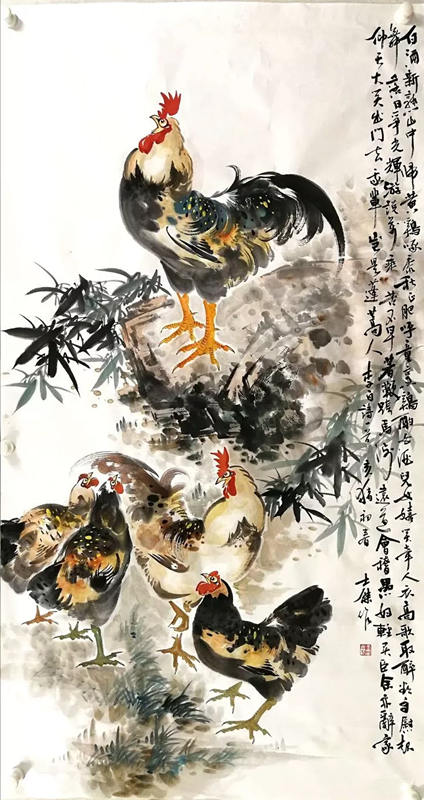 白酒新熟山中歸黃鷄啄黍秋正肥呼童烹鷄酌白酒兒女嬉笑牽人衣高歌取醉欲自慰起
舞落日爭光輝游說萬乘苦不早著鞭跨馬涉遠道會稽愚婦輕買臣余亦辭家
仰天大笑出門去我輩豈是蓬蒿人 李白詩一首 亥猪初春 士傑作